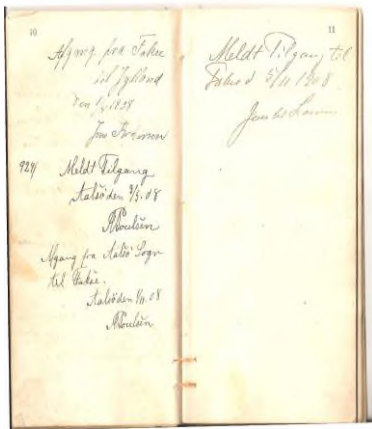 10
Afgang fra Fakse
til Jylland
Den 1/5 1908
Jens
924/ Meldt Tilgang
Aalsöden 3/5.08
RPoulsen
Afgang fra Aalsö Sogn
til Fakse.
Aalsöden 1/11.08
RPoulsen
11
Meldt Tilgang til
Fakse d 5/11 1908